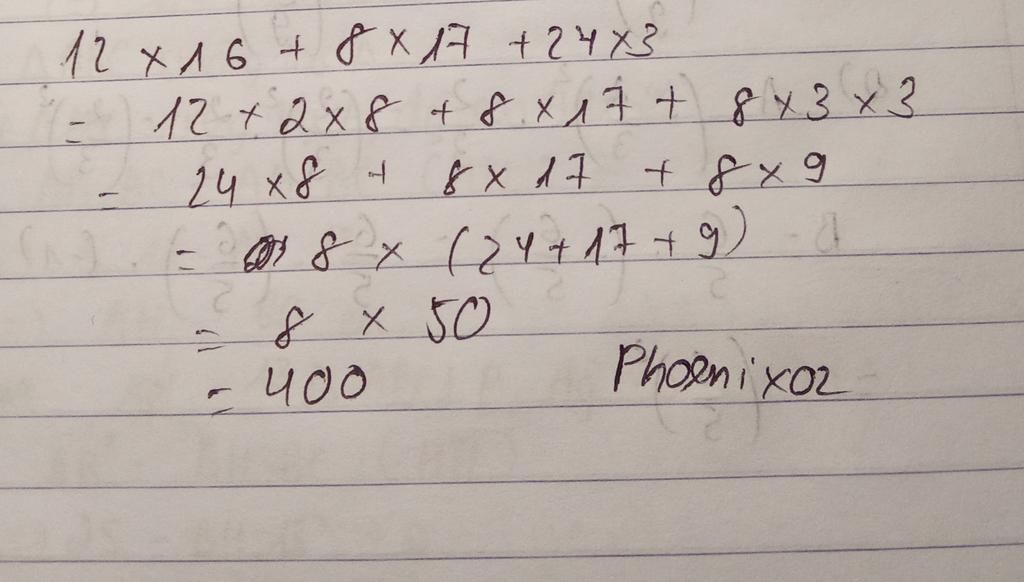 12 × 16 + 8 × 17 + 24 × 3
= 12 × 2 × 8 + 8 × 17 + 8 × 3 × 3
= 24 × 8 + 8 × 17 + 8 × 9
= 8 × (24 + 17 + 9)
= 8 × 50
= 400 Phoenix02